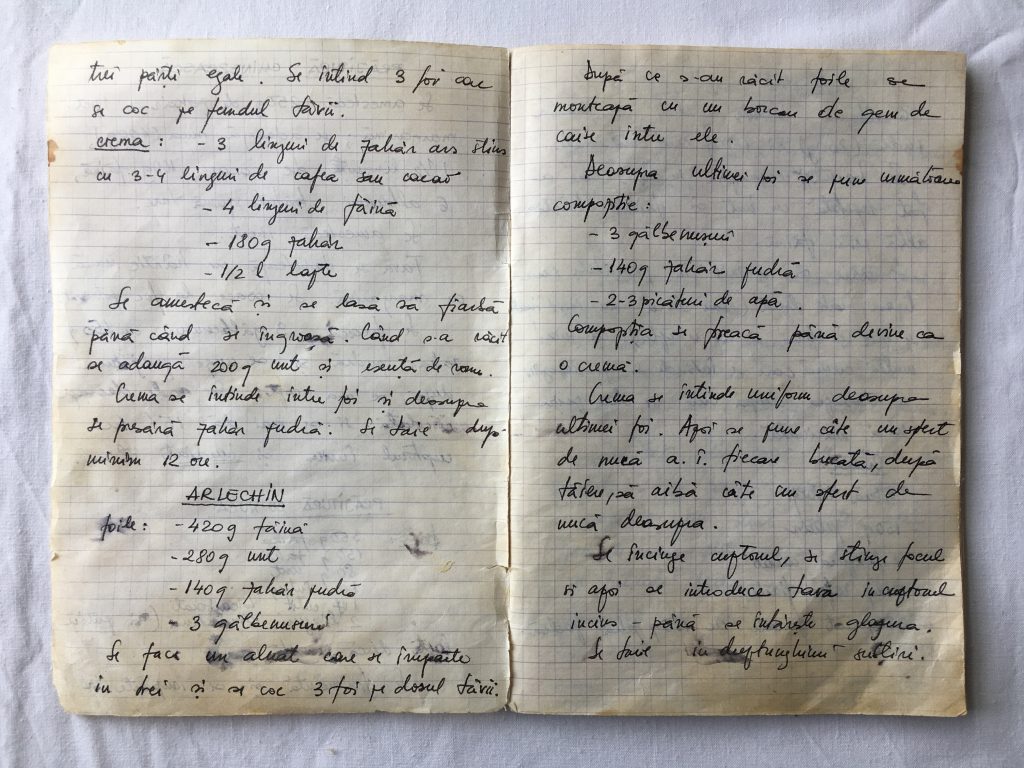 trei părți egale. Se întind 3 foi care
se coc pe fundul tăvii.
crema: - 3 linguri de zahăr ars stins
cu 3-4 linguri de cafea sau cacao
- 4 linguri de făină
- 180g zahăr
- 1/2 l lapte
Se amestecă și se lasă să fiarbă
până când se îngroașă. Când s-a răcit
se adaugă 200g unt și esență de rom.
Crema se întinde între foi și deasupra
se presară zahăr pudră. Se taie după
minim 12 ore.
ARLECHIN
foile: - 420g făină
- 280g unt
- 140g zahăr pudră
- 3 gălbenușuri
Se face un aluat care se împarte
în trei și se coc 3 foi pe dosul tăvii.
După ce s-au răcit foile se
montează cu un borcan de gem de
caise între ele.
Deasupra ultimei foi se pune următoarea
compoziție:
- 3 gălbenușuri
- 140g zahăr pudră
- 2-3 picături de apă.
Compoziția se freacă până devine ca
o cremă.
Crema se întinde uniform deasupra
ultimei foi. Apoi se pune câte un sfert
de nucă a. î. fiecare bucată, după
tăiere, să aibă câte un sfert de
nucă deasupra.
Se încinge cuptorul, se stinge focul
și apoi se introduce tava în cuptorul
încins - până se întărește glazura.
Se taie în dreptunghiuri subțiri.